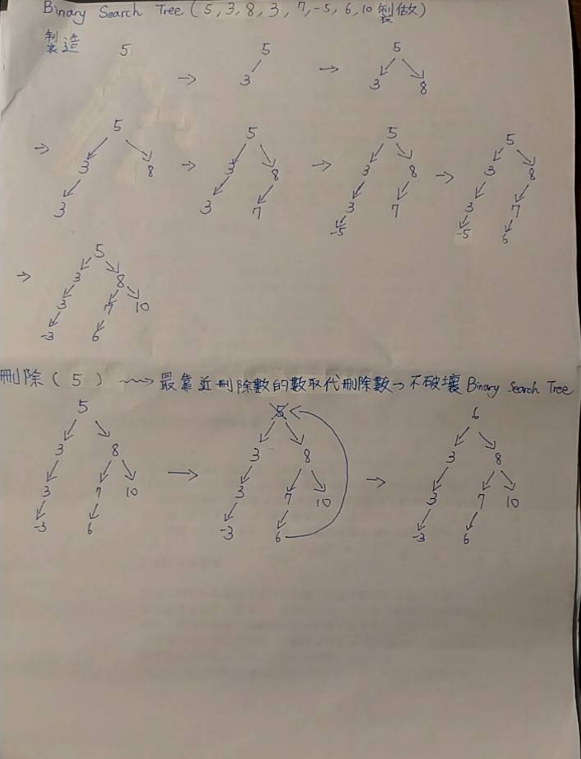 Binary Search Tree (5, 3, 8, 3, 7, -5, 6, 10 製做)
製造
5
→ 5 3
→ 5 3 8
→ 5 3 8 3
→ 5 3 8 3 7
→ 5 3 8 3 7 -5
→ 5 3 8 3 7 -5 6
→ 5 3 8 3 7 10 -3 6
刪除 ( 5 ) ~~> 最靠近刪除數的數取代刪除數→不破壞 Binary Search Tree
5 3 8 3 7 10 -3 6
→ 5 3 8 3 7 10 -3 6
→ 6 3 8 3 7 10 -3 6